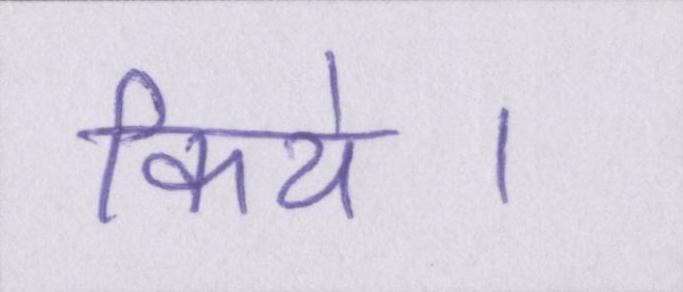 किये ।